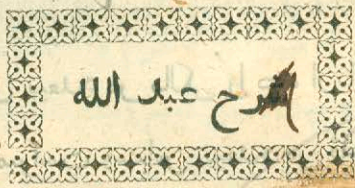 شرح عبد الله